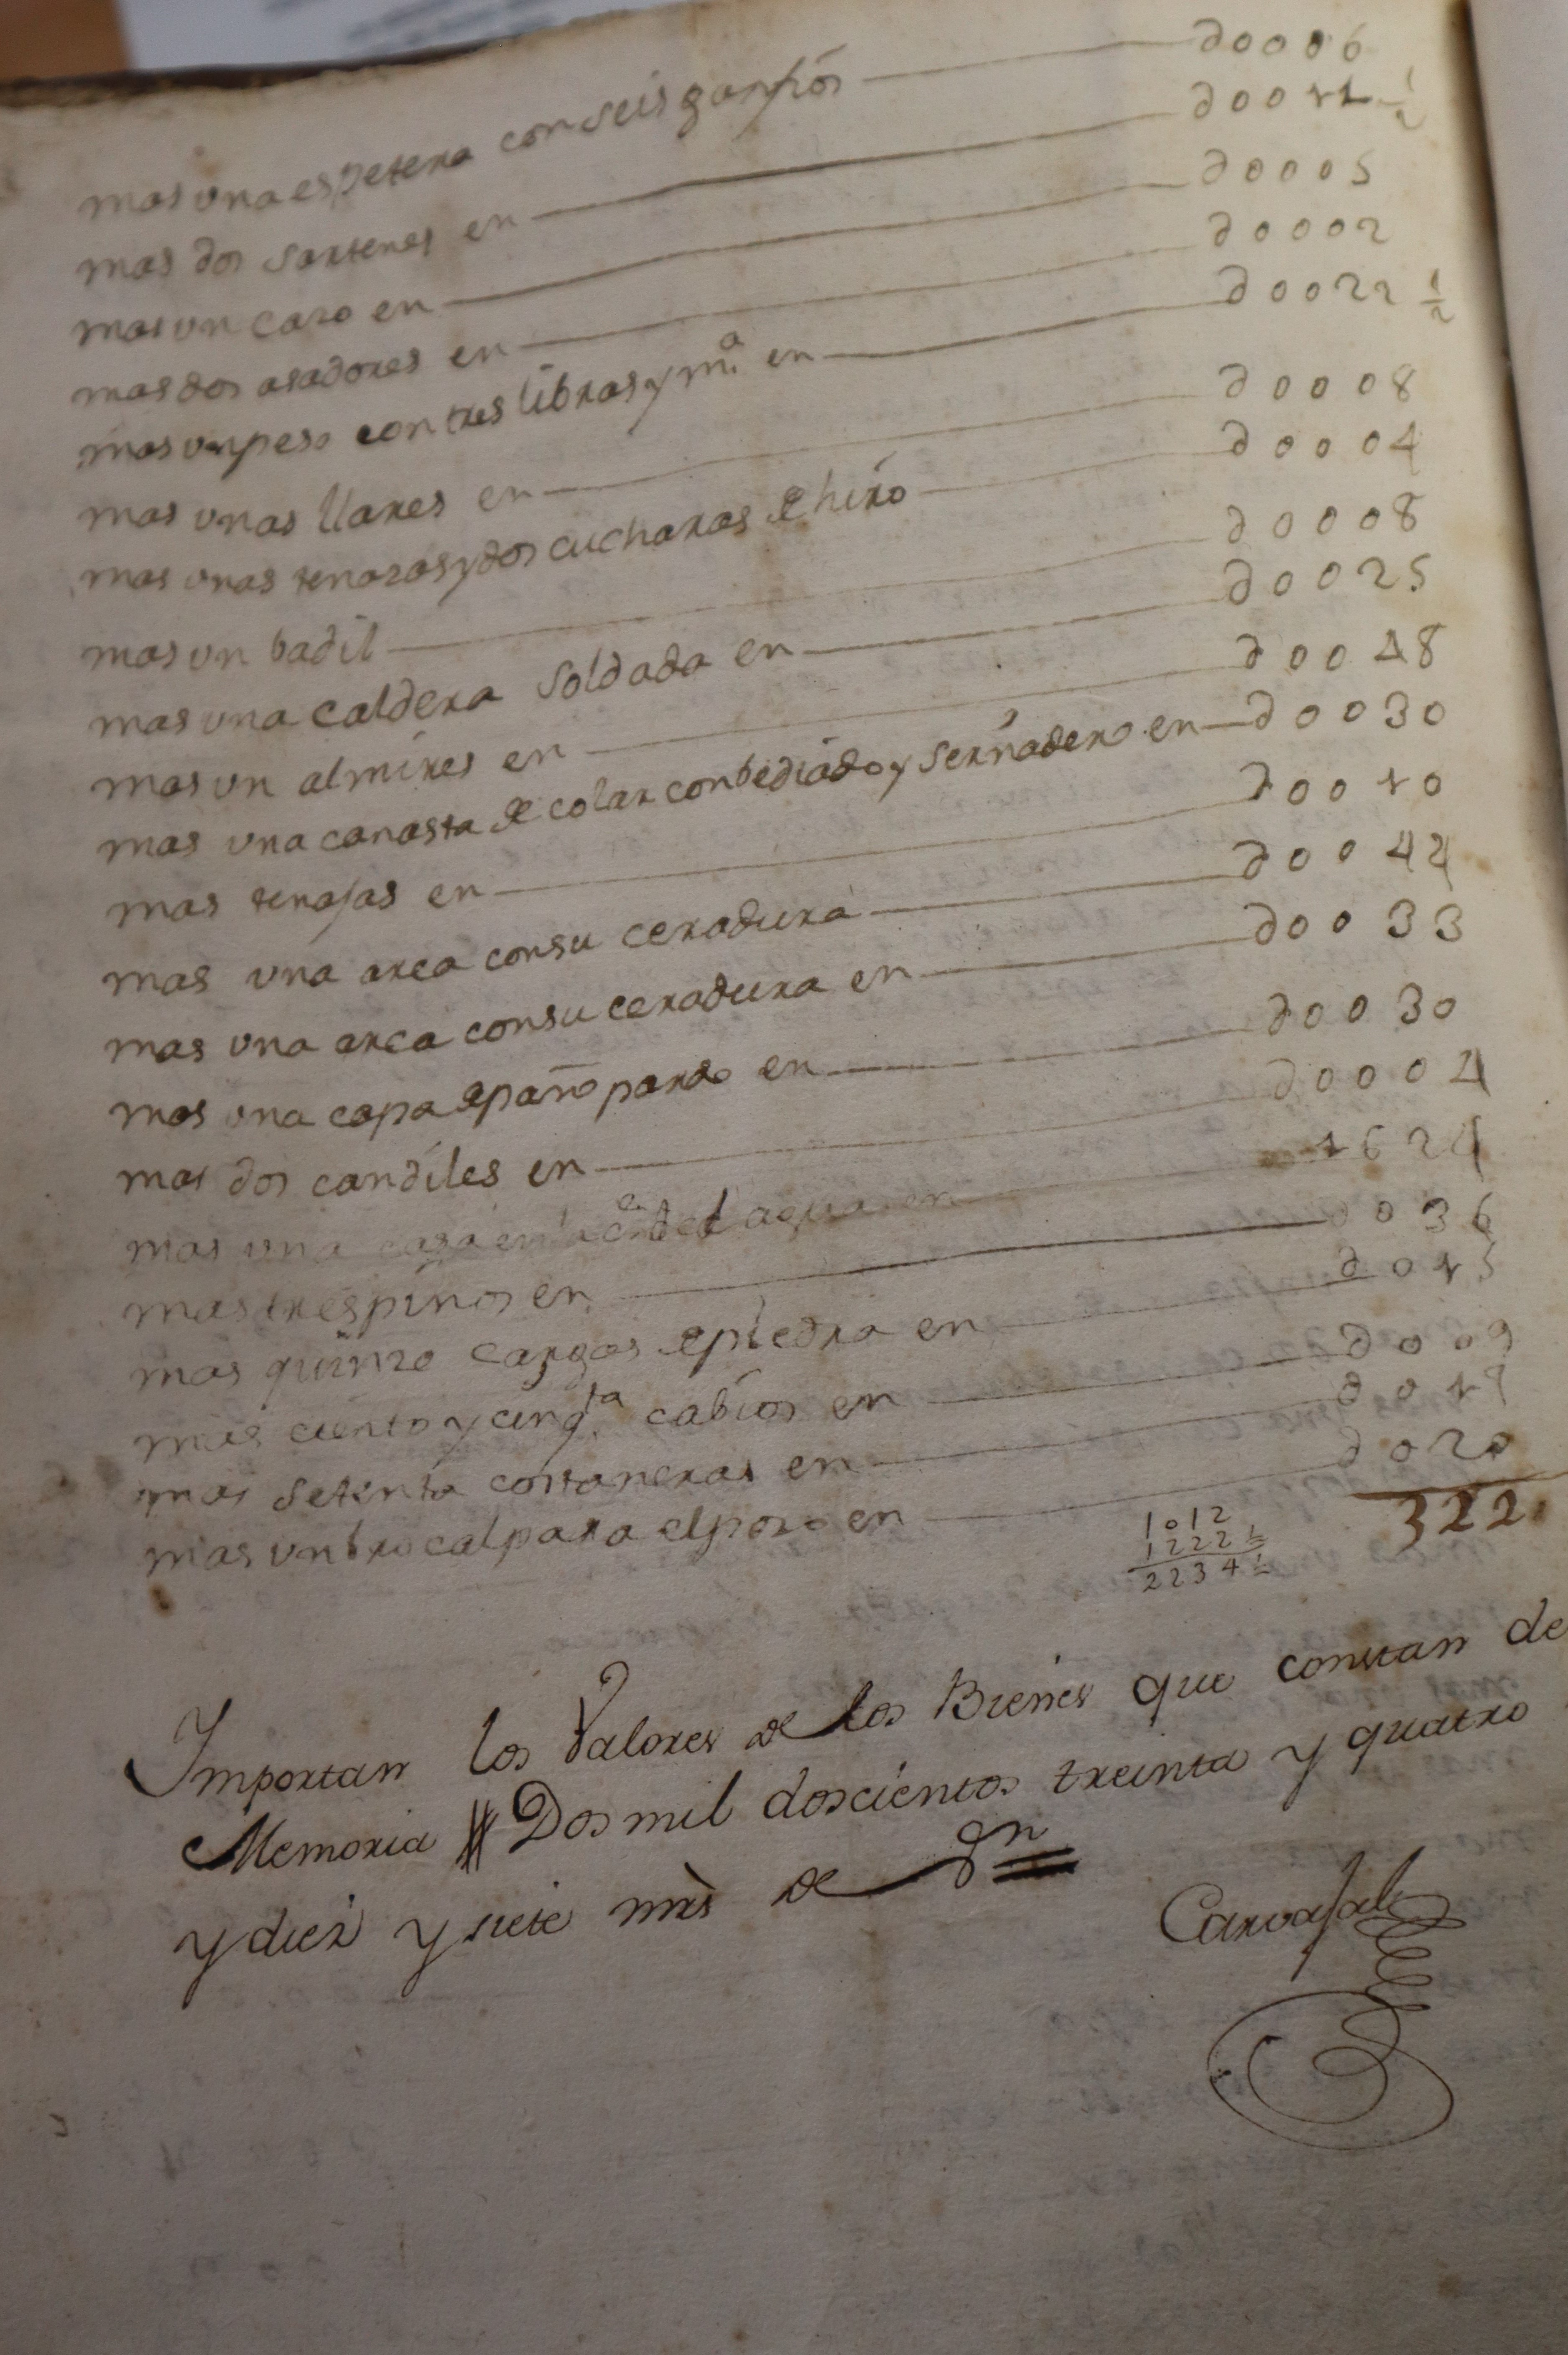 mas una espetera con seis ganfios — d0006
mas dos sartenes en — d0011 1/2
mas un cazo en — d0005
mas dos asadores en — d0002
mas un peso con tres libras y m.ª en — d0022 1/2
mas unas llares en — d0008
mas unas tenazas y dos cucharas de hiro — d0004
mas un badil — d0008
mas una caldera soldada en — d0025
mas un almires en — d0048
mas una canasta de colar con bediado y sernadero en — d0030
mas tenajas en — d0010
mas una arca con su ceradura — d0044
mas una arca con su ceradura en — d0033
mas una capa de paño pardo en — d0030
mas dos candiles en — d0004
mas una casa en la del agua en — 1624
mas tres pinos en — d036
mas quinze cargas de piedra en — d015
mas ciento y cinq.ta cabios en — d009
mas setenta costaneras en — d018
mas un brocal para el pozo en — d020
322
1012
1222 1/2
2234 1/2
Importan los Valores de los Bienes que constan de
Memoria Dos mil doscientos treinta y quatro
y diez y siete mrs de Vn
Carvajal